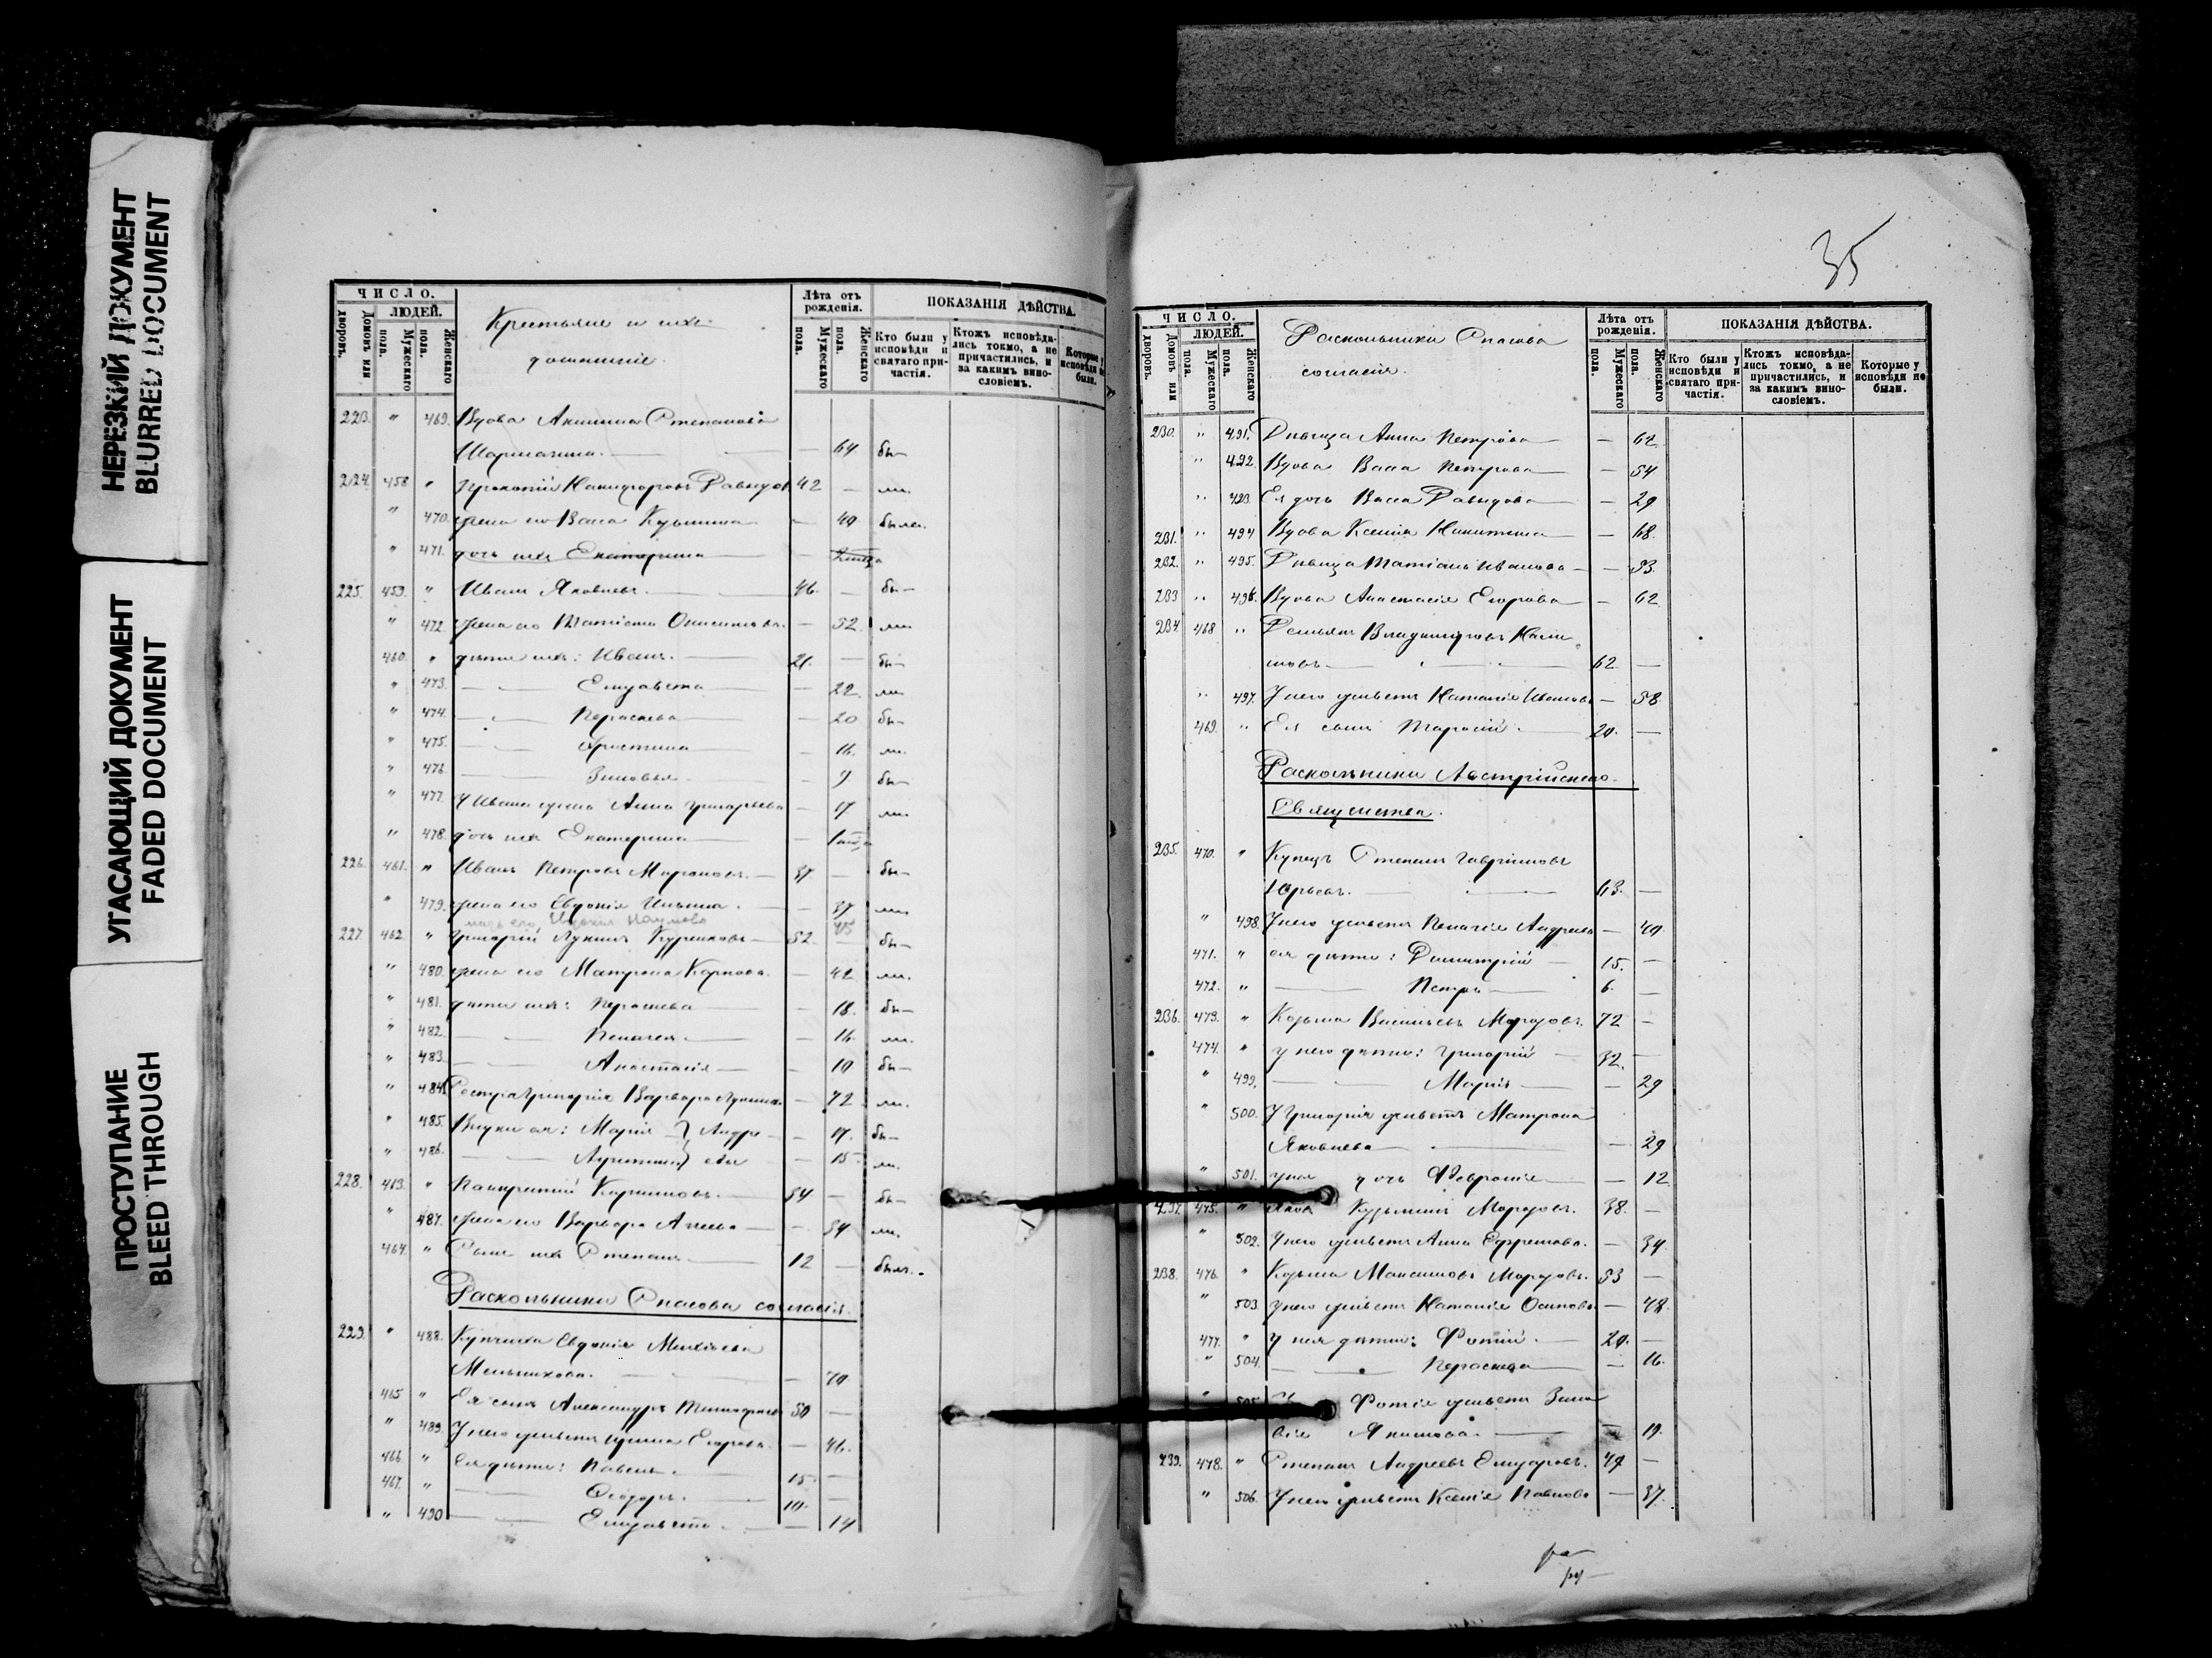 НЕРЕЗКИЙ ДОКУМЕНТ
BLURRED DOCUMENT
УГАСАЮЩИЙ ДОКУМЕНТ
FADED DOCUMENT
ПРОСТУПАНИЕ
BLEED THROUGH
ЧИСЛО.
ЛЮДЕЙ.
Домовъ или дворовъ.
Мужескаго пола.
Женскаго пола.
Крестьяне и ихъ
домашніе.
Лѣта отъ рожденія.
Мужескаго пола.
Женскаго пола.
ПОКАЗАНІЯ ДѢЙСТВА.
Кто были у исповѣди и святаго причастія.
Ктожъ исповѣдались токмо, а не причастились, и за какимъ винословіемъ.
Которые у исповѣди не были.
223. " 469. Вдова Акилина Степанова
64 бы-
224. 458 " Прокопій Никифоровъ Давыдов 42 —
" 470. жена его Васса Кузьмина — 40 была.
" 471. дочь ихъ Екатерина —
225. 459. " Иванъ Яковлевъ. 46. — бы-
" 472. жена его — 52.
460. " дѣти ихъ: Иванъ. 21. — бы-
" 473. Елизавета — 22.
" 474. Параскева — 20 бы-
" 475. Христина — 16.
" 476. Зиновья — 9 бы-
" 477. У Ивана жена Анна Григорьева — 17
" 478. дочь ихъ Екатерина —
226. 461. " Иванъ Петровъ — бы-
" 479. жена его Евдокія Ильина. — 37
мать его, Наумова 75
227. 462. " Григорій Лукинъ 52. — бы-
" 480. жена его Матрона Карпова. — 42
" 481. дѣти ихъ: Параскева — 18. бы-
" 482. Пелагея — 16.
" 483. Анастасія — 10 бы-
" 484. Сестра Григорія Варвара Лукина — 72
" 485. Внуки ея: Марія } Андре — 17. бы-
" 486. } евы — 15
228. 413. " 54 — бы-
" 487. жена его Варвара — 54
464. " Сынъ ихъ Степанъ 12 — былъ.
Раскольники Спасова согласія.
229. " 488. Купчиха Евдокія
Мельникова. — 70
465 " Ея сынъ Александръ 50 —
" 489. У него живетъ Ирина Егорова. — 46.
466. " Ея дѣти: Павелъ. 15 —
467. " Ѳеодоръ. 10. —
" 490 Елизавета. — 14
35
ЧИСЛО.
ЛЮДЕЙ.
Домовъ или дворовъ.
Мужескаго пола.
Женскаго пола.
Раскольники Спасова
согласія.
Лѣта отъ рожденія.
Мужескаго пола.
Женскаго пола.
ПОКАЗАНІЯ ДѢЙСТВА.
Кто были у исповѣди и святаго причастія.
Ктожъ исповѣдались токмо, а не причастились, и за какимъ винословіемъ.
Которые у исповѣди не были.
230. " 491. Дѣвица Анна Петрова — 62
" 492. Вдова Васса Петрова — 54
" 493 Ея дочь Васса Давыдова — 29
231. " 494 Вдова Ксенія Никитина — 68.
232. " 495. Дѣвица Иванова — 53.
233 " 496. Вдова Анастасія Егорова — 62
234. 468 " Демьянъ Владиміровъ
62 —
" 497. У него живетъ Наталія Иванова — 58.
469. " Ея сынъ Тарасій. 20. —
Раскольники Австрійскаго
Священства.
235. 470. " Купецъ Степанъ Гавриловъ
Юрьевъ. 63. —
" 498. У него живетъ Пелагія Андреева — 40
471. " ея дѣти: Димитрій 15. —
472. " Петръ 6. —
236. 473. " Козьма Васильевъ Морозовъ. 72 —
474. " у него дѣти: Григорій 32. —
" 499. Марія — 29
" 500. У Григорія живетъ Матрона
Яковлева — 29
" 501. дочь Февронія — 12
237. 475. " Яковъ Кузьминъ Морозовъ. 38. —
" 502. У него живетъ Анна Ефремова. — 34
238. 476. " Козьма Максимовъ Морозовъ. 53 —
" 503. У него живетъ Наталія Осипова — 48.
477. " У нея дѣти: Фотій. 20. —
" 504. Параскева — 16.
" 505. Фотія живетъ Зино
вія Якимова. — 19.
239. 478. " Степанъ Андреевъ Елизаровъ. —
" 506. У него живетъ Ксенія Павлова — 37.